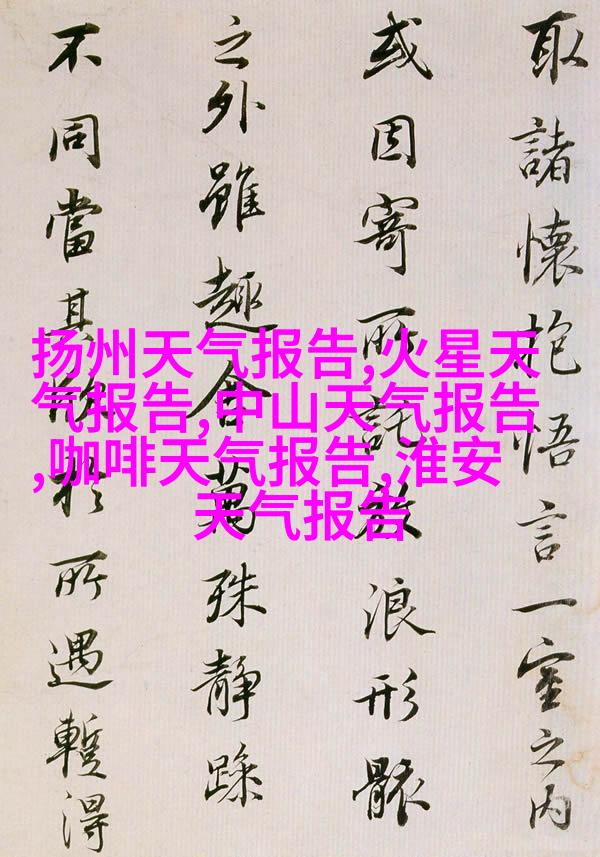 取諸懷抱悟言一室之內
或因寄所託放浪形骸
之外雖趣舍萬殊靜躁
不同當其欣於所遇暫得
扬州天气报告,火星天
气报告,中山天气报告
,咖啡天气报告,淮安
天气报告